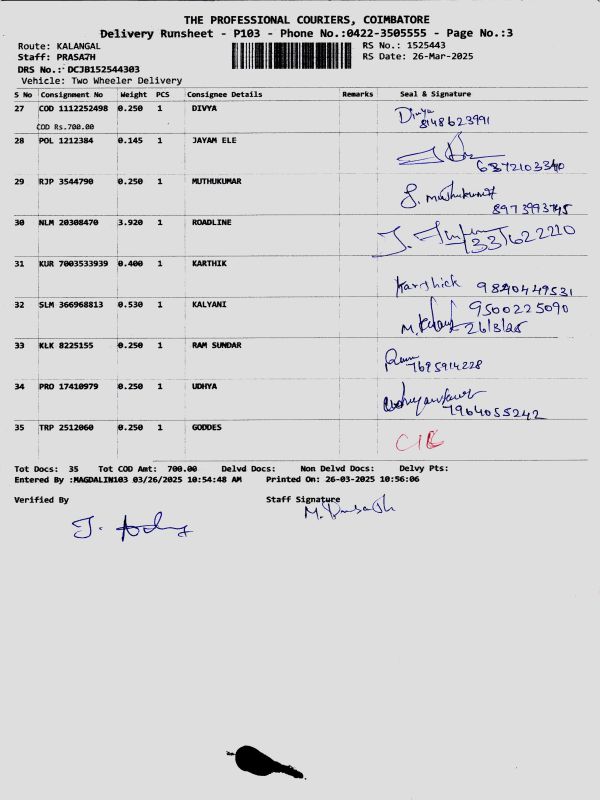 THE PROFESSIONAL COURIERS, COIMBATORE
Delivery Runsheet - P103 - Phone No.:0422-3505555 - Page No.:3
Route: KALANGAL RS No.: 1525443
Staff: PRASATH RS Date: 26-Mar-2025
DRS No.: DCJB152544303
Vehicle: Two Wheeler Delivery
S No Consignment No Weight PCS Consignee Details Remarks Seal & Signature
27 COD 1112252498 0.250 1 DIVYA Divya
8148623991
COD Rs.700.00
28 POL 1212384 0.145 1 JAYAM ELE
6372103340
29 RJP 3544790 0.250 1 MUTHUKUMAR J. muthukumar
8973993745
30 NLM 20308470 3.920 1 ROADLINE
31 KUR 7003533939 0.400 1 KARTHIK Karthick 9890449531
32 SLM 366968813 0.530 1 KALYANI 9500225090
26/3/25
33 KLK 8225155 0.250 1 RAM SUNDAR Ram
7695914228
34 PRO 17410979 0.250 1 UDHYA
7964055242
35 TRP 2512060 0.250 1 GODDES
Tot Docs: 35 Tot COD Amt: 700.00 Delvd Docs: Non Delvd Docs: Delvy Pts:
Entered By :MAGDALIN103 03/26/2025 10:54:48 AM Printed On: 26-03-2025 10:56:06
Verified By Staff Signature
M. Prasath